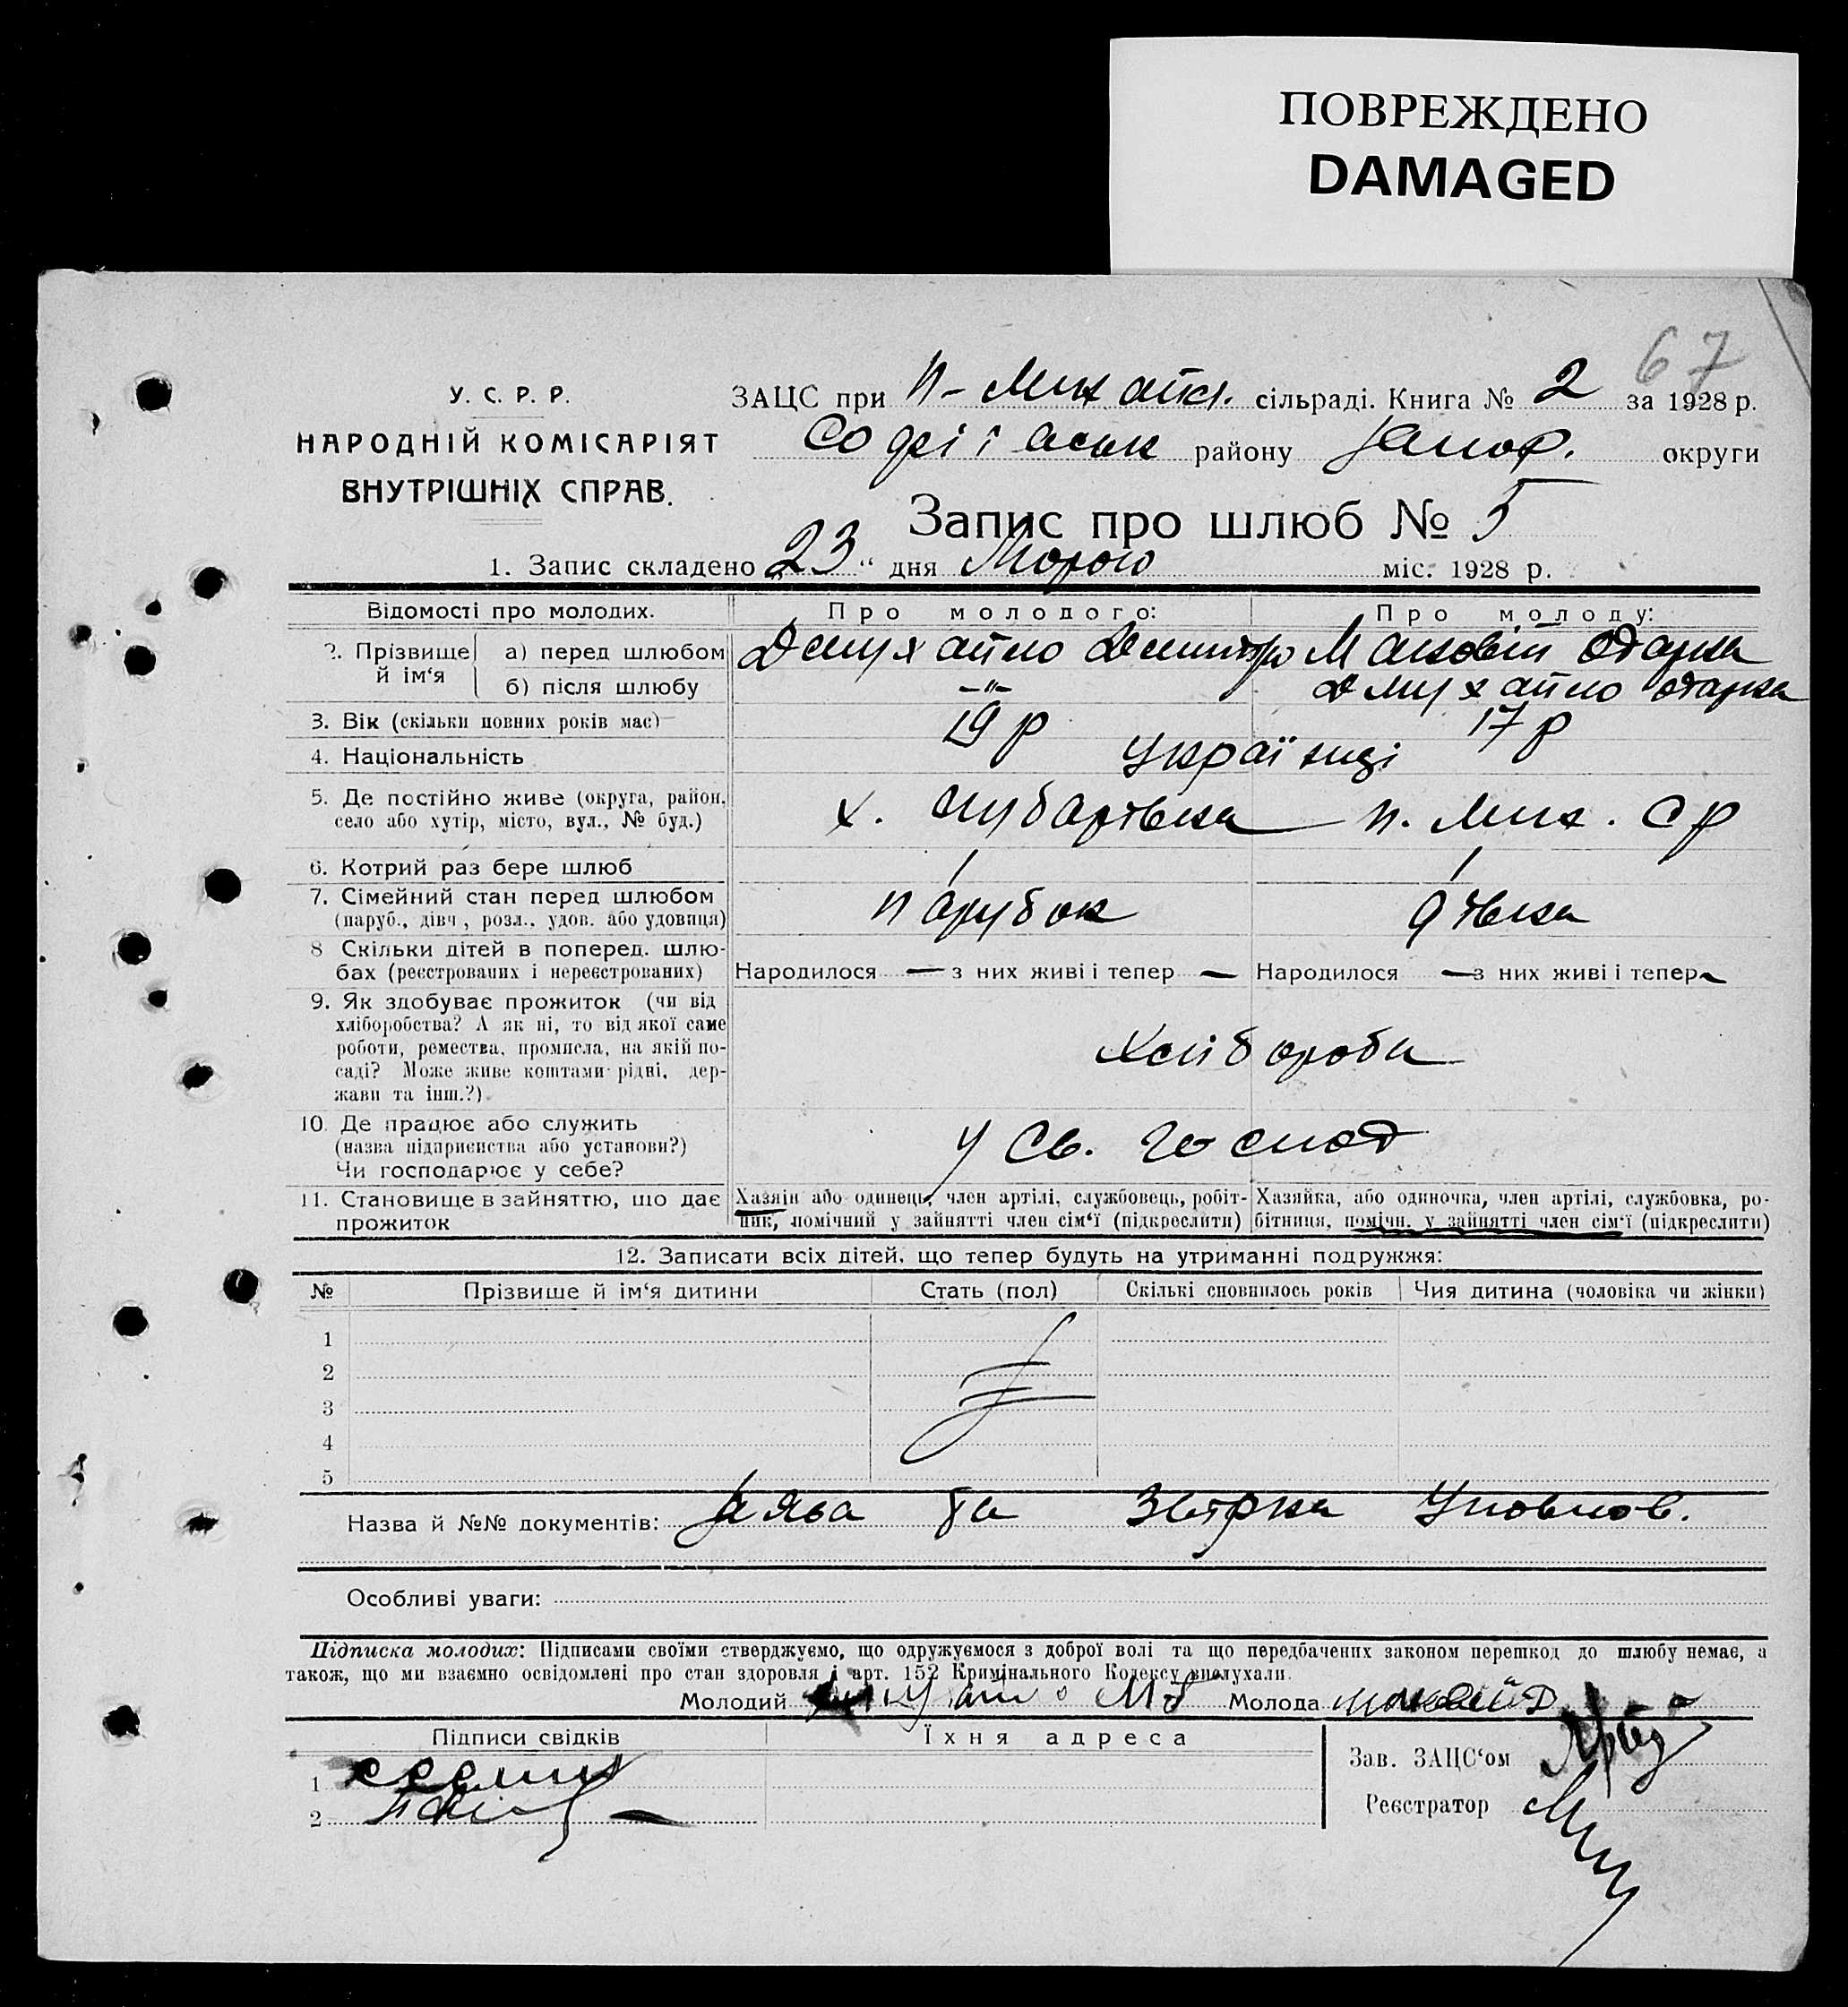 ПОВРЕЖДЕНО
DAMAGED
67
У. С. Р. Р.
НАРОДНІЙ КОМІСАРІЯТ
ВНУТРІШНІХ СПРАВ.
ЗАЦС при Н-Михайл. сільраді. Книга № 2 за 1928 р.
району Запор. округи
Запис про шлюб № 5
1. Запис складено 23 " дня міс. 1928 р.
Відомості про молодих. Про молодого: Про молоду:
2. Прізвище й ім'я а) перед шлюбом Дмухайло Дмитро Маковій Одарка
б) після шлюбу -"- Дмухайло Одарка
3. Вік (скільки повних років має) 19 р 17 р
4. Національність Українці
5. Де постійно живе (округа, район, х. Н. Мих. СР
село або хутір, місто, вул., № буд.)
6. Котрий раз бере шлюб 1 1
7. Сімейний стан перед шлюбом парубок дівка
(паруб., дівч., розл., удов. або удовиця)
8 Скільки дітей в поперед. шлю- Народилося — з них живі і тепер — Народилося — з них живі і тепер —
бах (реєстрованих і нереєстрованих)
9. Як здобуває прожиток (чи від
хліборобства? А як ні, то від якої саме
роботи, ремества, промисла, на якій по- Хлібороби
саді? Може живе коштами рідні, дер-
жави та інш.?)
10. Де працює або служить
(назва підприємства або установи?) у Св. господ
Чи господарює у себе?
11. Становище в зайняттю, що дає Хазяін або одинець, член артілі, службовець, робіт- Хазяйка, або одиночка, член артілі, службовка, ро-
прожиток ник, помічний у зайнятті член сім'ї (підкреслити) бітниця, помічн. у зайнятті член сім'ї (підкреслити)
12. Записати всіх дітей, що тепер будуть на утриманні подружжя:
№ Прізвище й ім'я дитини Стать (пол) Скількі сповнилось років Чия дитина (чоловіка чи жінки)
1
2
3
4
5
Назва й №№ документів: Заява та Звірка Уповнов.
Особливі уваги:
Підписка молодих: Підписами своїми стверджуємо, що одружуємося з доброї волі та що передбачених законом перешкод до шлюбу немає, а
також, що ми взаємно освідомлені про стан здоровля і арт. 152 Кримінального Кодексу вислухали.
Молодий Молода Маковій
Підписи свідків Їхня адреса
Зав. ЗАЦС'ом
1
Реєстратор
2